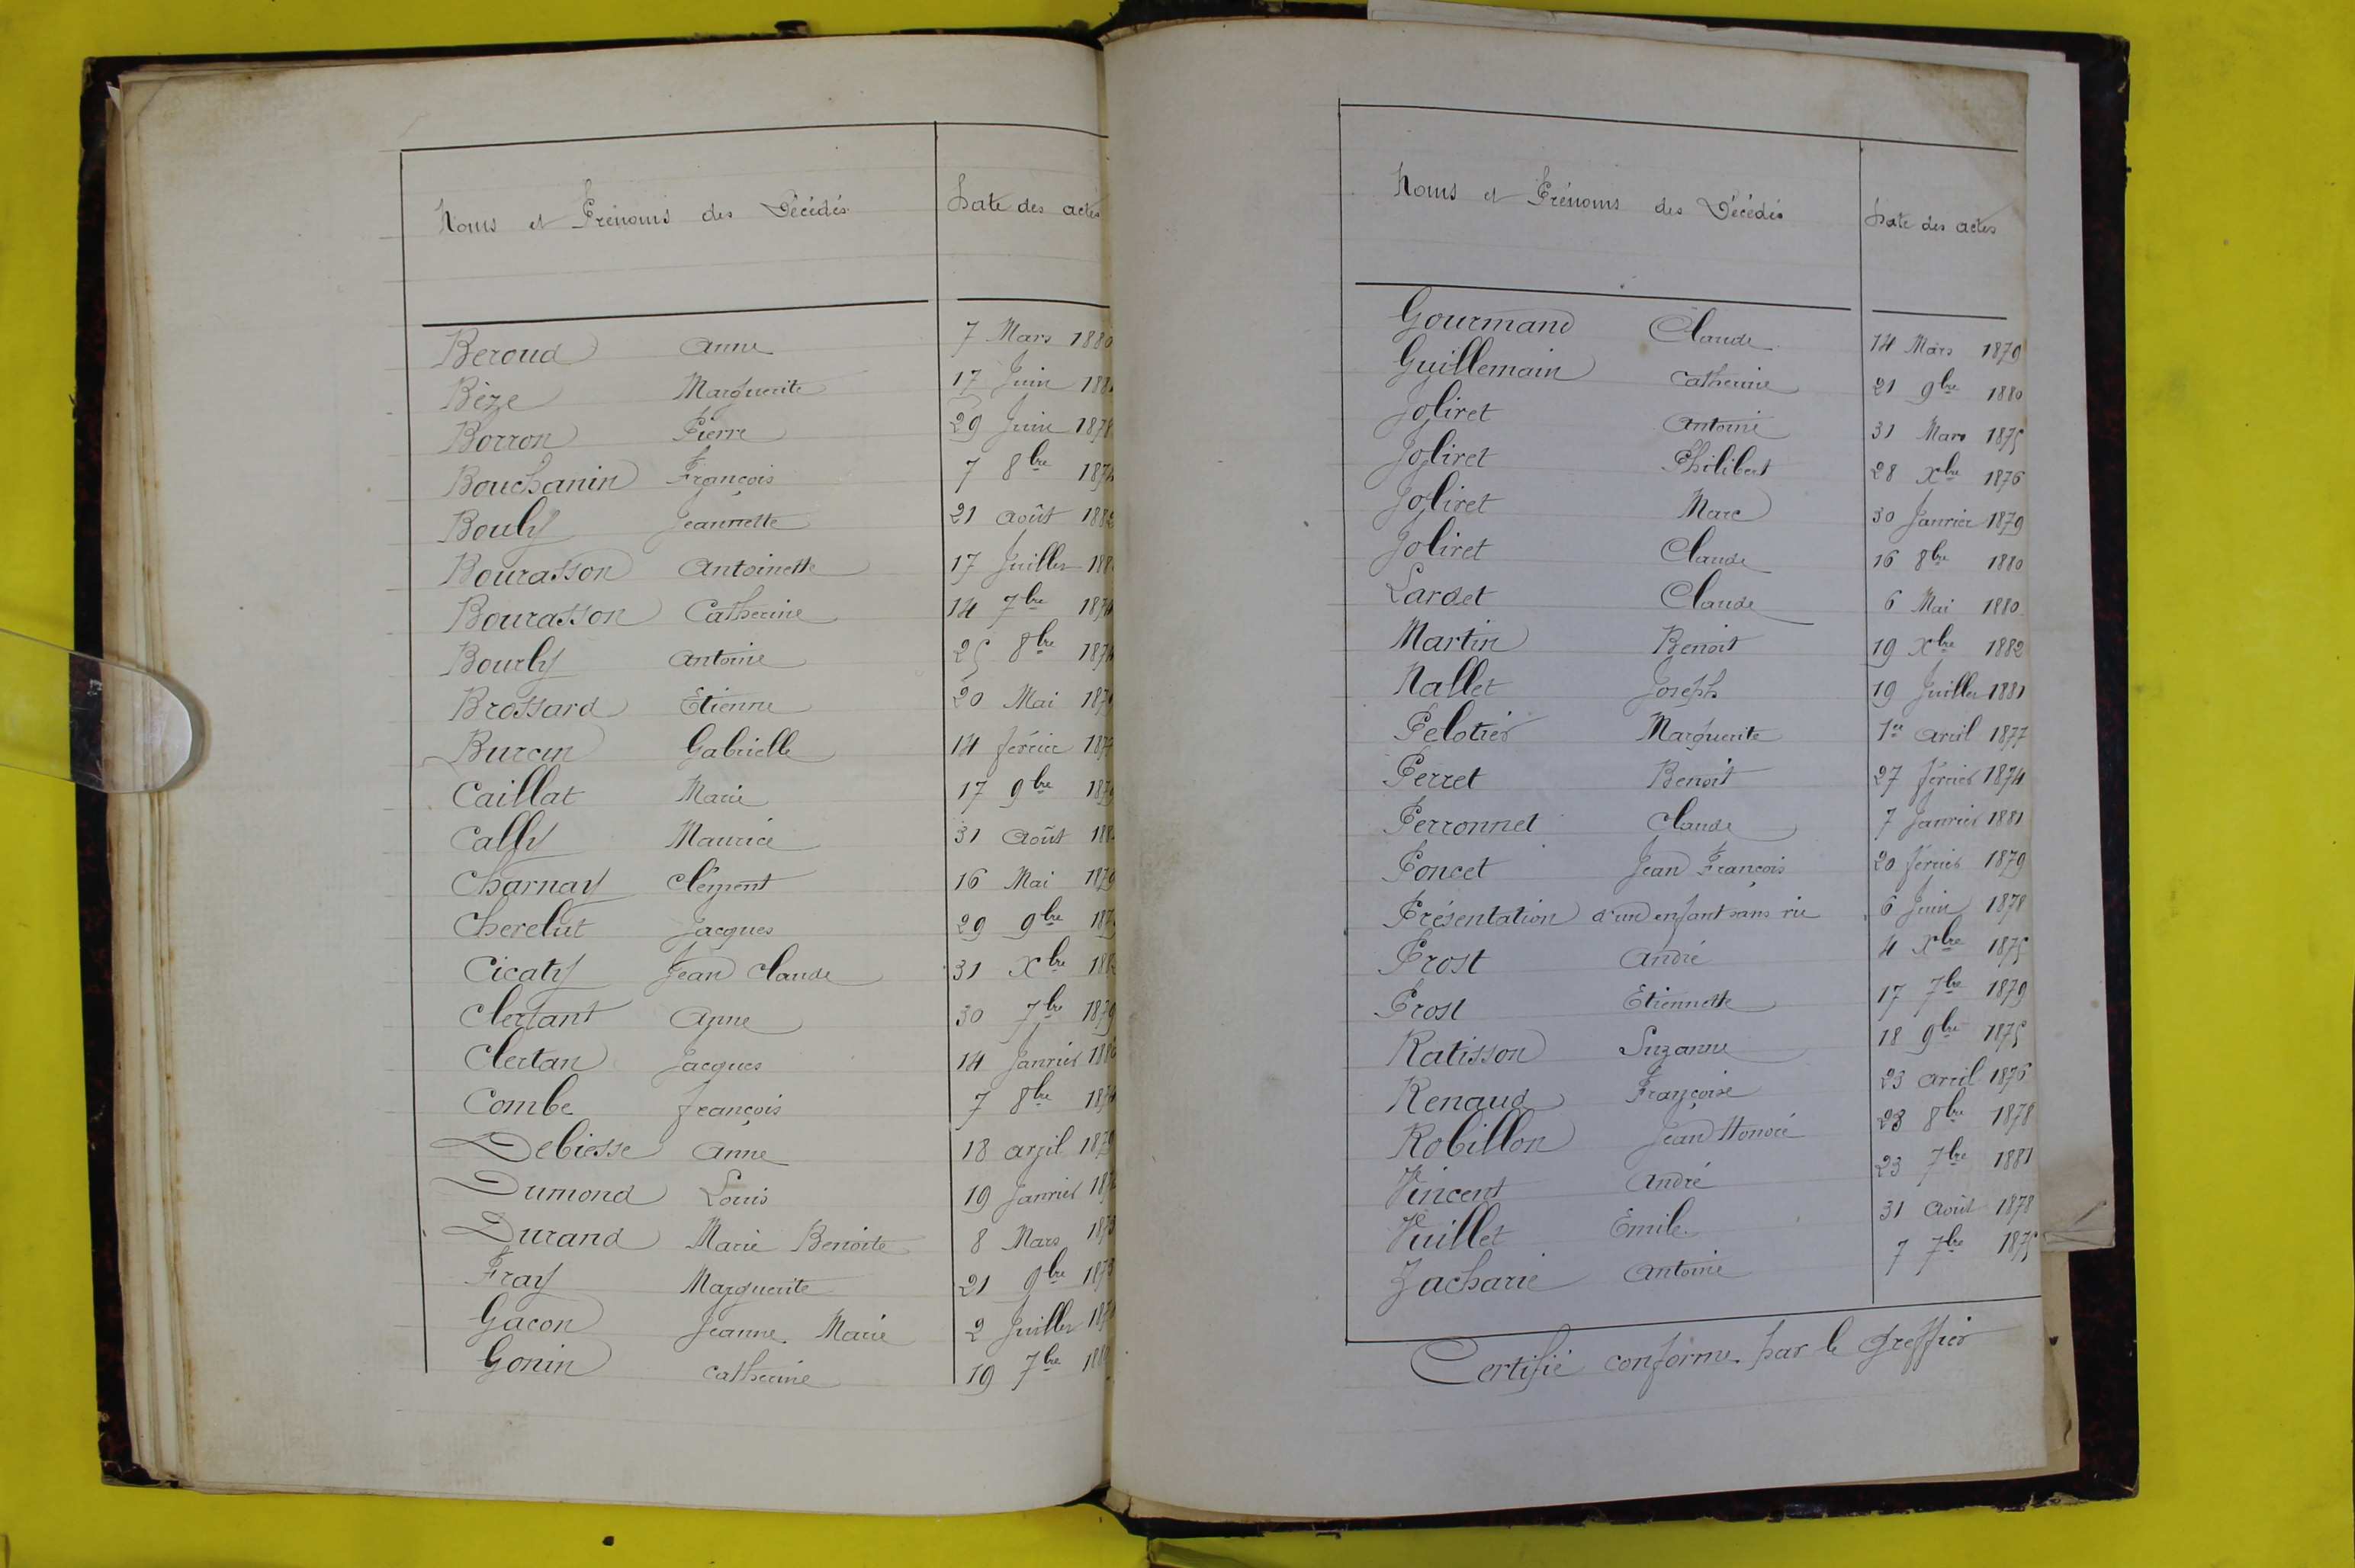 Noms et Prénoms des Décédés Date des actes
Beroud Anne 7 Mars 1880
Bèze Marguerite 17 Juin
Borron Pierre 29 Juin 1878
Bouchanin François 7 8bre 1874
Bouly Jeannette 21 août 1882
Bourasson Antoinette 17 Juillet
Bourasson Catherine 14 7bre
Bourly Antoine 25 8bre
Brossard Etienne 20 Mai
Burcin Gabrielle 14 février
Caillat Marie 17 9bre 1879
Cally Maurice 31 Août
Charnay Clément 16 Mai 1879
Cherelut Jacques 29 9bre
Cicaty Jean Claude 31 Xbre 1882
Clertant Anne 30 7bre 1879
Clertan Jacques 14 Janvier 1880
Combe françois 7 8bre 1874
Debiesse Anne 18 avril 1879
Dumond Louis 19 Janvier
Durand Marie Benoite 8 Mars 1873
Fray Marguerite 21 9bre 1873
Gacon Jeanne Marie 2 Juillet
Gonin Catherine 19 7bre
Noms et Prénoms des Décédés Date des actes
Gourmand Claude 14 Mars 1879
Guillemain Catherine 21 9bre 1880
Joliret Antoine 31 Mars 1875
Joliret Philibert 28 Xbre 1876
Joliret Marc 30 Janvier 1879
Joliret Claude 16 8bre 1880
Lardet Claude 6 Mai 1880
Martin Benoit 19 Xbre 1882
Nallet Joseph 19 Juillet 1881
Pelotier Marguerite 1er avril 1877
Perret Benoit 27 février 1874
Perronnet Claude 7 Janvier 1881
Poncet Jean François 20 février 1879
Présentation d'un enfant sans vie 6 Juin 1878
Prost André 4 Xbre 1875
Prost Etiennette 17 7bre 1879
Ratisson Suzanne 18 9bre 1875
Renaud Françoise 23 avril 1876
Robillon Jean Honoré 23 8bre 1878
Vincent André 23 7bre 1881
Vuillet Emile 31 Août 1878
Zacharie Antoine 7 7bre 1875
Certifié conforme par le Greffier